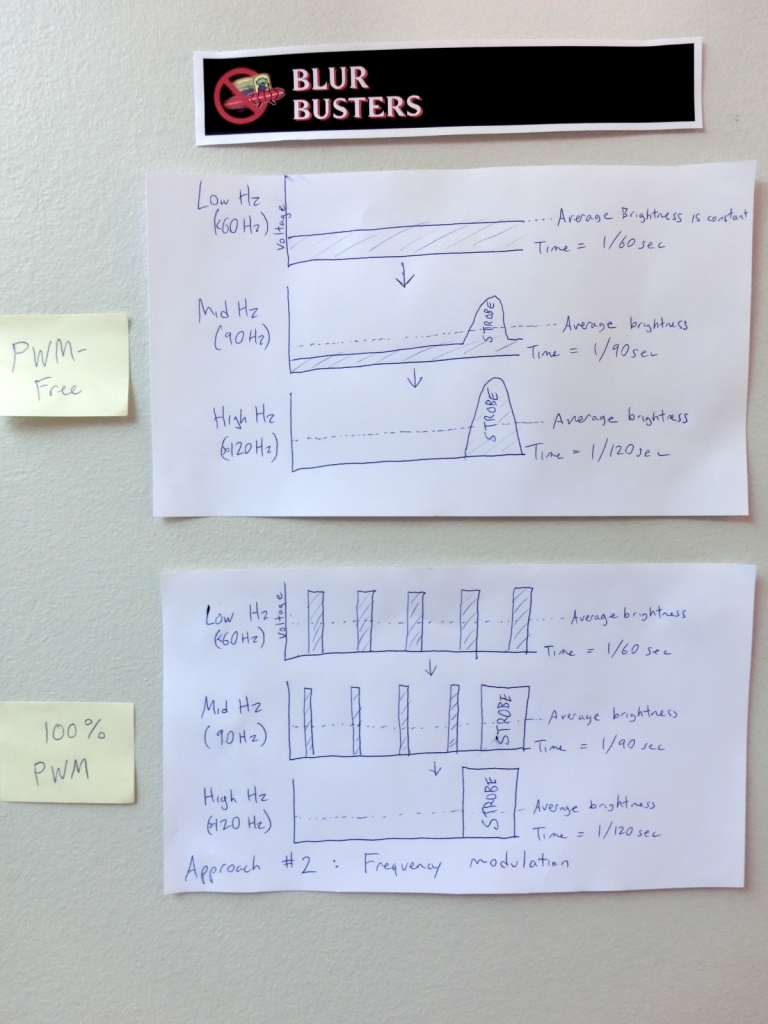 BLUR
BUSTERS
Low Hz
(<60Hz)
Voltage
Average Brightness is constant
Time = 1/60 sec
PWM-
Free
Mid Hz
(90Hz)
STROBE
Average brightness
Time = 1/90sec
High Hz
(>120Hz)
STROBE
Average brightness
Time = 1/120sec
Low Hz
(<60Hz)
Voltage
Average brightness
Time = 1/60 sec
100%
PWM
Mid Hz
(90Hz)
STROBE
Average brightness
Time = 1/90 sec
High Hz
(>120 Hz)
STROBE
Average brightness
Time = 1/120 sec
Approach #2: Frequency modulation